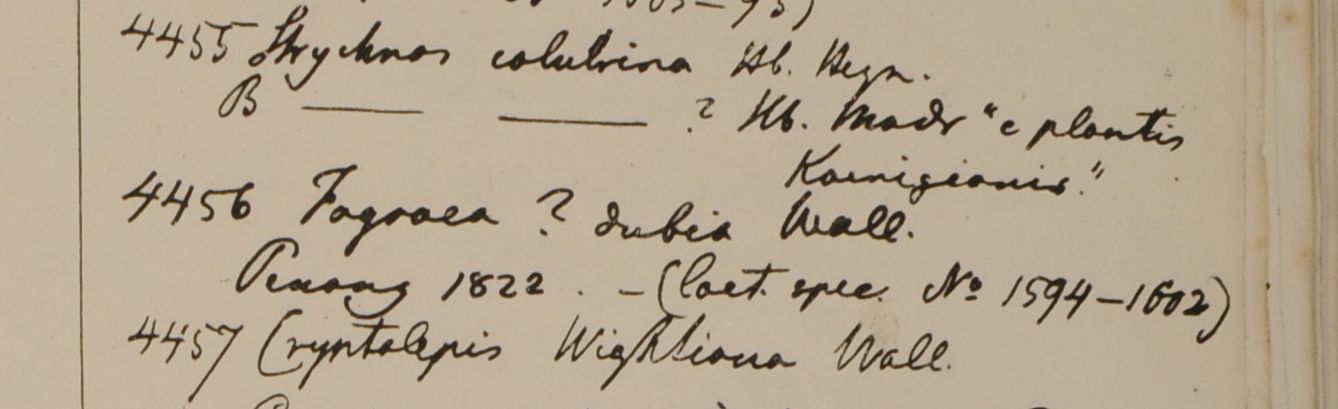 1885-95)
4455 Strychnos colubrina Hb. Heyn.
B —— —— ? Hb. Madr "e plantis
Koenigianis."
4456 Fagraea ? dubia Wall.
Penang 1822. - (Caet. spec. Nº 1594-1602)
4457 Cryptolepis Wightiana Wall.